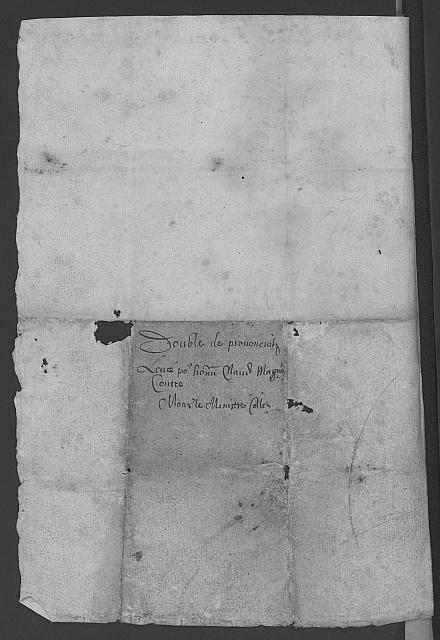 Double de prononciaõn
Levee po.r honn. Claud. Magnin
Contre
Mons.r le Ministre Colle